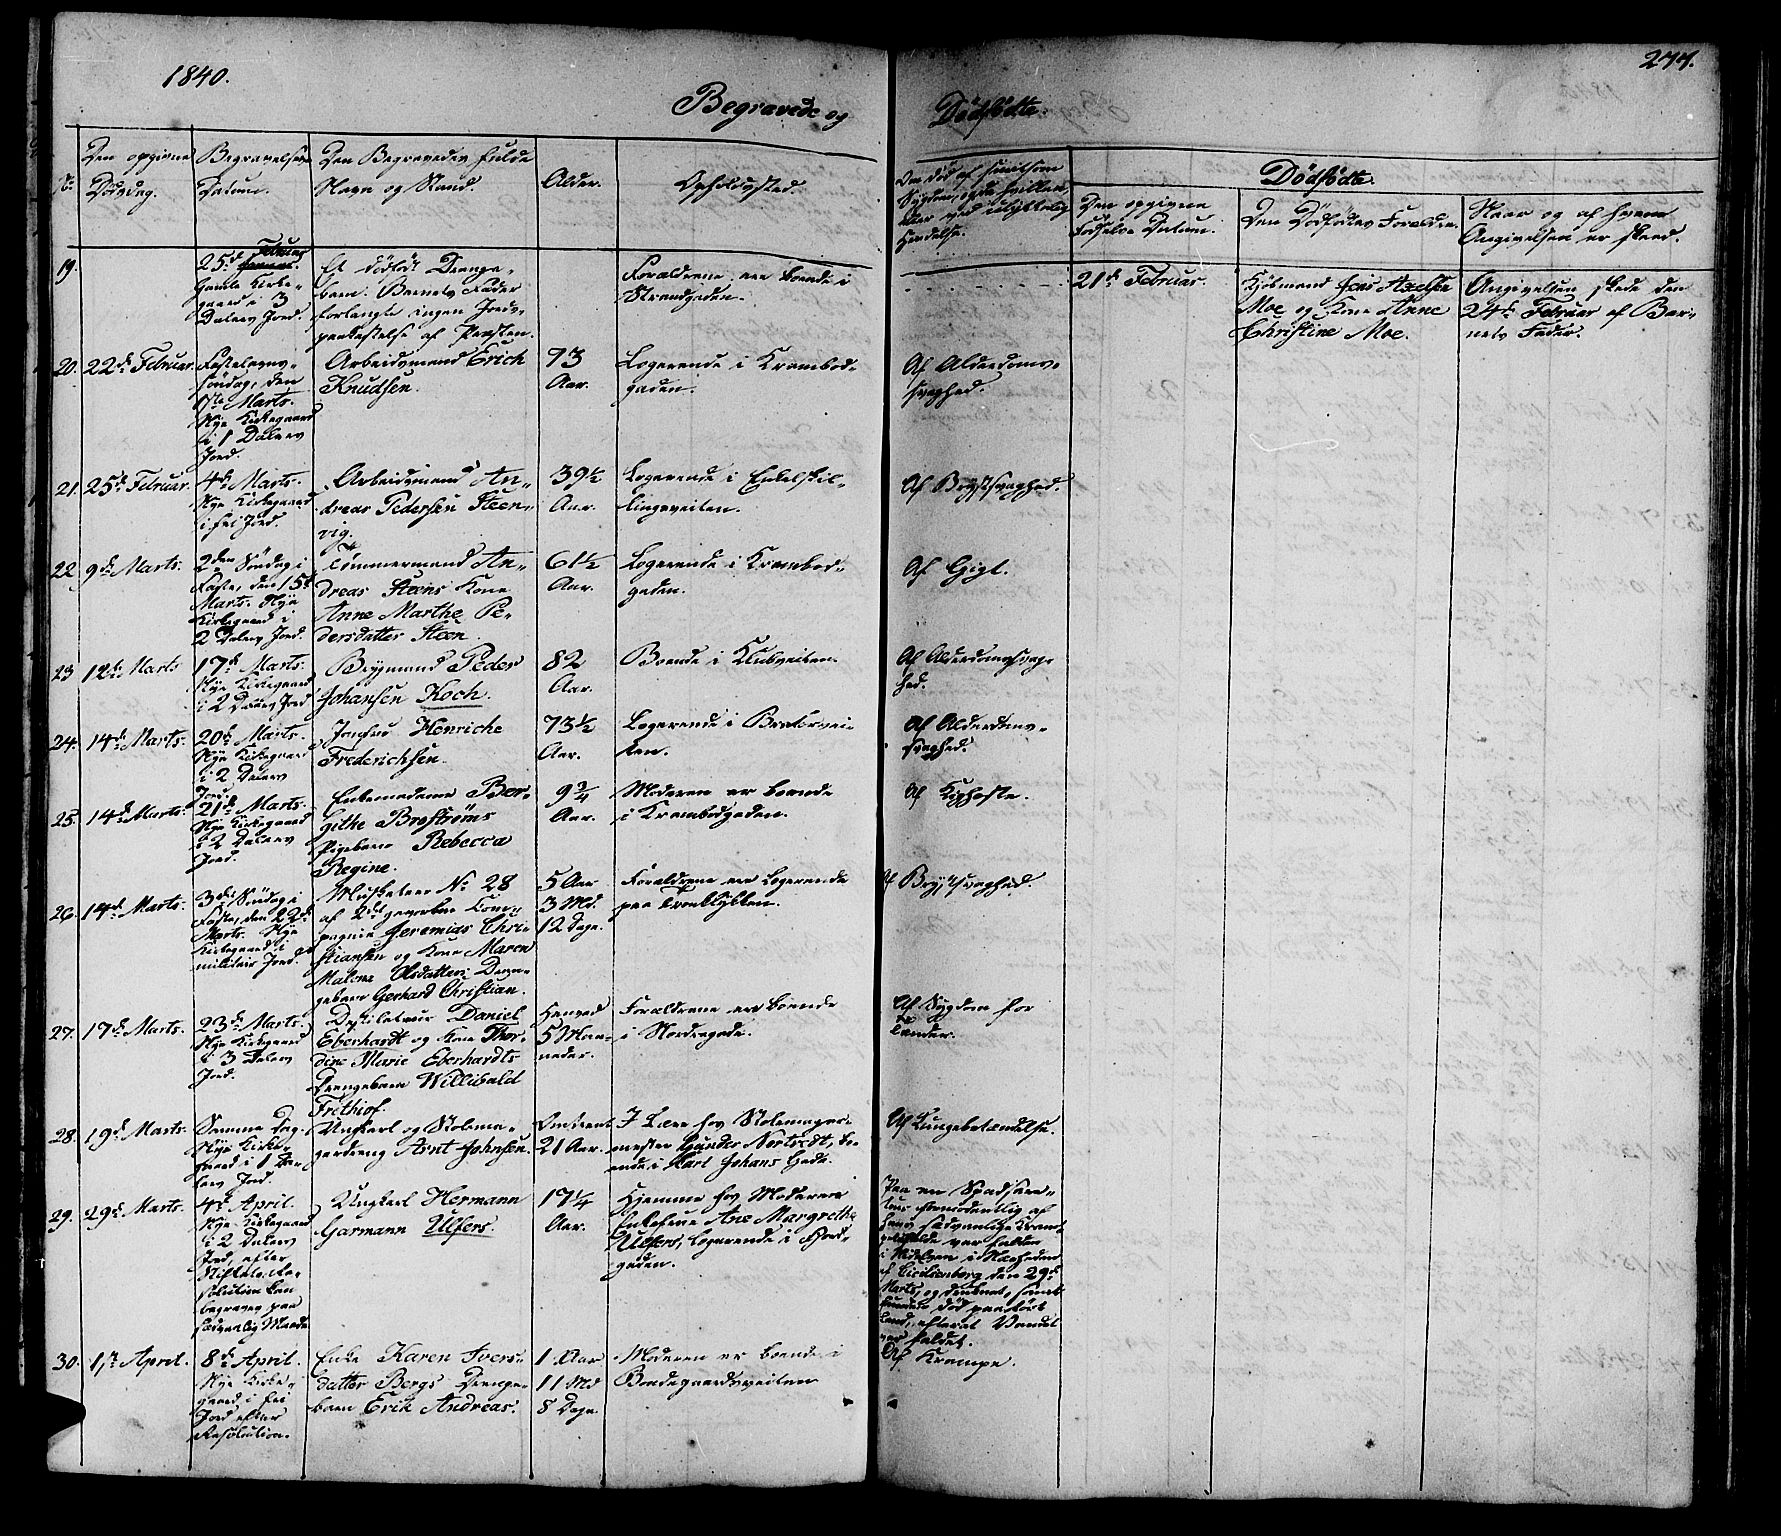 1840.
277.
Begravede og
Dødfødte.
No
Den opgivne
Dødsdag.
Begravelses
Datum.
Den Begravedes fulde
Navn og Stand.
Alder.
Opholdssted
Om død af smitsom
Sygdom, og da hvilken,
eller ved ulykkelig
Hendelse.
Dødfødte.
Den opgivne
Fødselss Datum.
Den Dødfødtes Forældre.
Naar og af hvem
Angivelsen er skeed.
19.
25de Februar
Gamle Kirke-
gaard i 3
Dalers Jord.
Et dødfødt Drenge-
barn. Barnets Fader
forlangte ingen Jords-
paakastelse af Præsten.
Forældrene ere boende i
Strandgaden.
21de Februar.
Kjøbmand Jens Axelsen
Moe og Kone Anne
Christine Moe.
Angivelsen skede den
24de Februar af Bar-
nets Fader.
20.
22de Februar.
Fastelavns-
søndag, den
1ste Marts.
Nye Kirkegaard
i 1 Dalers
Jord.
Arbeidsmand Erich
Knudsen.
73
Aar.
Logerende i Krambod-
gaden.
Af Alderdoms-
svaghed.
21.
25de Februar.
4de Marts.
Nye Kirkegaard
i fri Jord.
Arbeidsmand An-
dreas Pedersen Steen-
vig.
39½
Aar.
Logerende i Enkelskil-
lingsveiten.
Af Brystsvaghed.
22
9de Marts.
2den Søndag i
Faste, den 15de
Marts. Nye
Kirkegaard i
2 Dalers Jord.
Tømmermand An-
dreas Steens Kone
Anne Marthe Pe-
dersdatter Steen.
61½
Aar.
Logerende i Krambod-
gaden.
Af Gigt.
23
12te Marts
17de Marts.
Nye Kirkegaard
i 2 Dalers Jord
Bygmand Peder
Johansen Koch.
82
Aar.
Boende i Klubveiten.
Af Alderdomssvag-
hed.
24.
14de Marts.
20de Marts.
Nye Kirkegaard
i 2 Dalers
Jord.
Jomfru Henriche
Frederichsen.
73½
Aar.
Logerende i Bratørvei-
ten.
Af Alderdoms-
svaghed.
25.
14de Marts.
21de Marts.
Nye Kirkegaard
i 2 Dalers
Jord.
Enkemadame Ber-
githe Brostrøms
Pigebarn Rebecca
Regine.
9¾
Aar.
Moderen er boende
i Krambodgaden.
Af Kighoste.
26.
14de Marts.
3die Søndag i
Faste, den 22de
Marts. Nye
Kirkegaard i
militair Jord.
Musketeer No 28
af 2det geworbne Com-
pagnie Jeremias Chri-
stiansen og Kone Maren
Malene Olsdatters Dren-
gebarn Gerhard Christian.
5 Aar
3 Md.
12 Dage.
Forældrene ere Logerende
paa Tronstykket.
Af Brystsvaghed.
27.
17de Marts.
23de Marts.
Nye Kirkegaard
i 3 Dalers
Jord.
Destilateur Daniel
Eberhardt og Kone Thor-
dine Marie Eberhardts
Drengebarn Willibald
Frithiof.
Henved
5 Maa-
neder.
Forældrene ere boende
i Nordregade.
Af Sygdom for
Tænder.
28.
19de Marts.
Samme Dag.
Nye Kirke-
gaard i 1 Da-
lers Jord.
Ungkarl og Stolema-
gerdreng Arnt Johnsen.
Omtrent
21 Aar.
I Lære hos Stolemager-
mester Gunder Nertvedt, bo-
ende i Karl Johans Gade.
Af Lungebetændelse.
29.
29de Marts.
4de April.
Nye Kirkegaard
i 2 Dalers
Jord, efter
Stiftets Re-
solution kan
begraves paa
sædvanlig Maade
Ungkarl Hermann
Garmann Ulfers.
17¼
Aar.
Hjemme hos Moderen
Enkefrue Ane Margrethe
Ulfers, Logerende i Fjord-
gaden.
Paa en Spadsere-
hans sædvanlige Kramp
tilfælde var falden
i Nidelven i Nærheden
af Ceciliensborg den 29de
Marts, og druknet, samt
funden død paa tørt
Land, efterat Vandet
var faldet.
30.
1ste April.
8de April.
Nye Kirke-
gaard i fri
Jord efter
Resolution.
Enke Karen Ivers-
datter Bergs Drenge-
barn Erik Andreas.
1 Aar
11 Md
8 Dage.
Moderen er boende i
Bondegaardsveiten
Af Krampe.